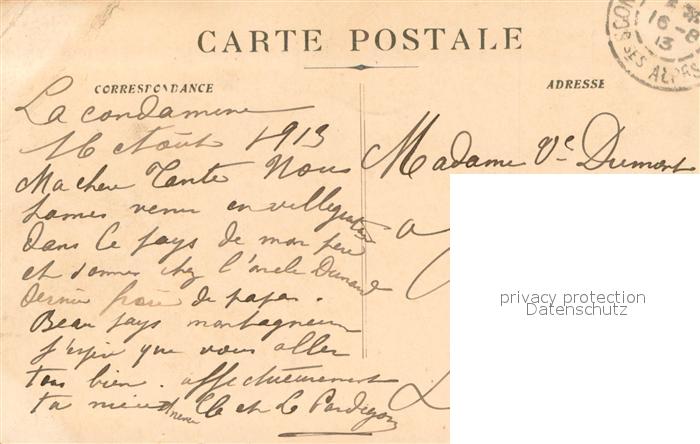 CARTE POSTALE
CORRESPONDANCE
ADRESSE
16-8
13
SES ALPES
La condamine
16 Aout 1913
Ma chere Tante Nous
sommes venu en villegiature
dans le pays de mon pere
et sommes chez l'oncle Dunand
dernier frère de papa.
Beau pays montagneux
j'espere que vous aller
tous bien. affectueusement
ta niece et neveu
Madame Ve Dumont
a
privacy protection
Datenschutz